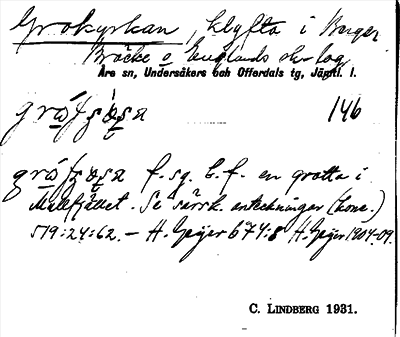 Grokyrkan, klyfta i Berget
Bräcke o Englands skog
Åre sn, Undersåkers och Offerdals tg, Jämtl. l.
146
f. sg. b. f. en grotta i
Mullfjället. Se särsk. anteckningar (konc.)
519:24:62. – H. Geijer 674:8 H. Geijer 1904-09.
C. LINDBERG 1931.